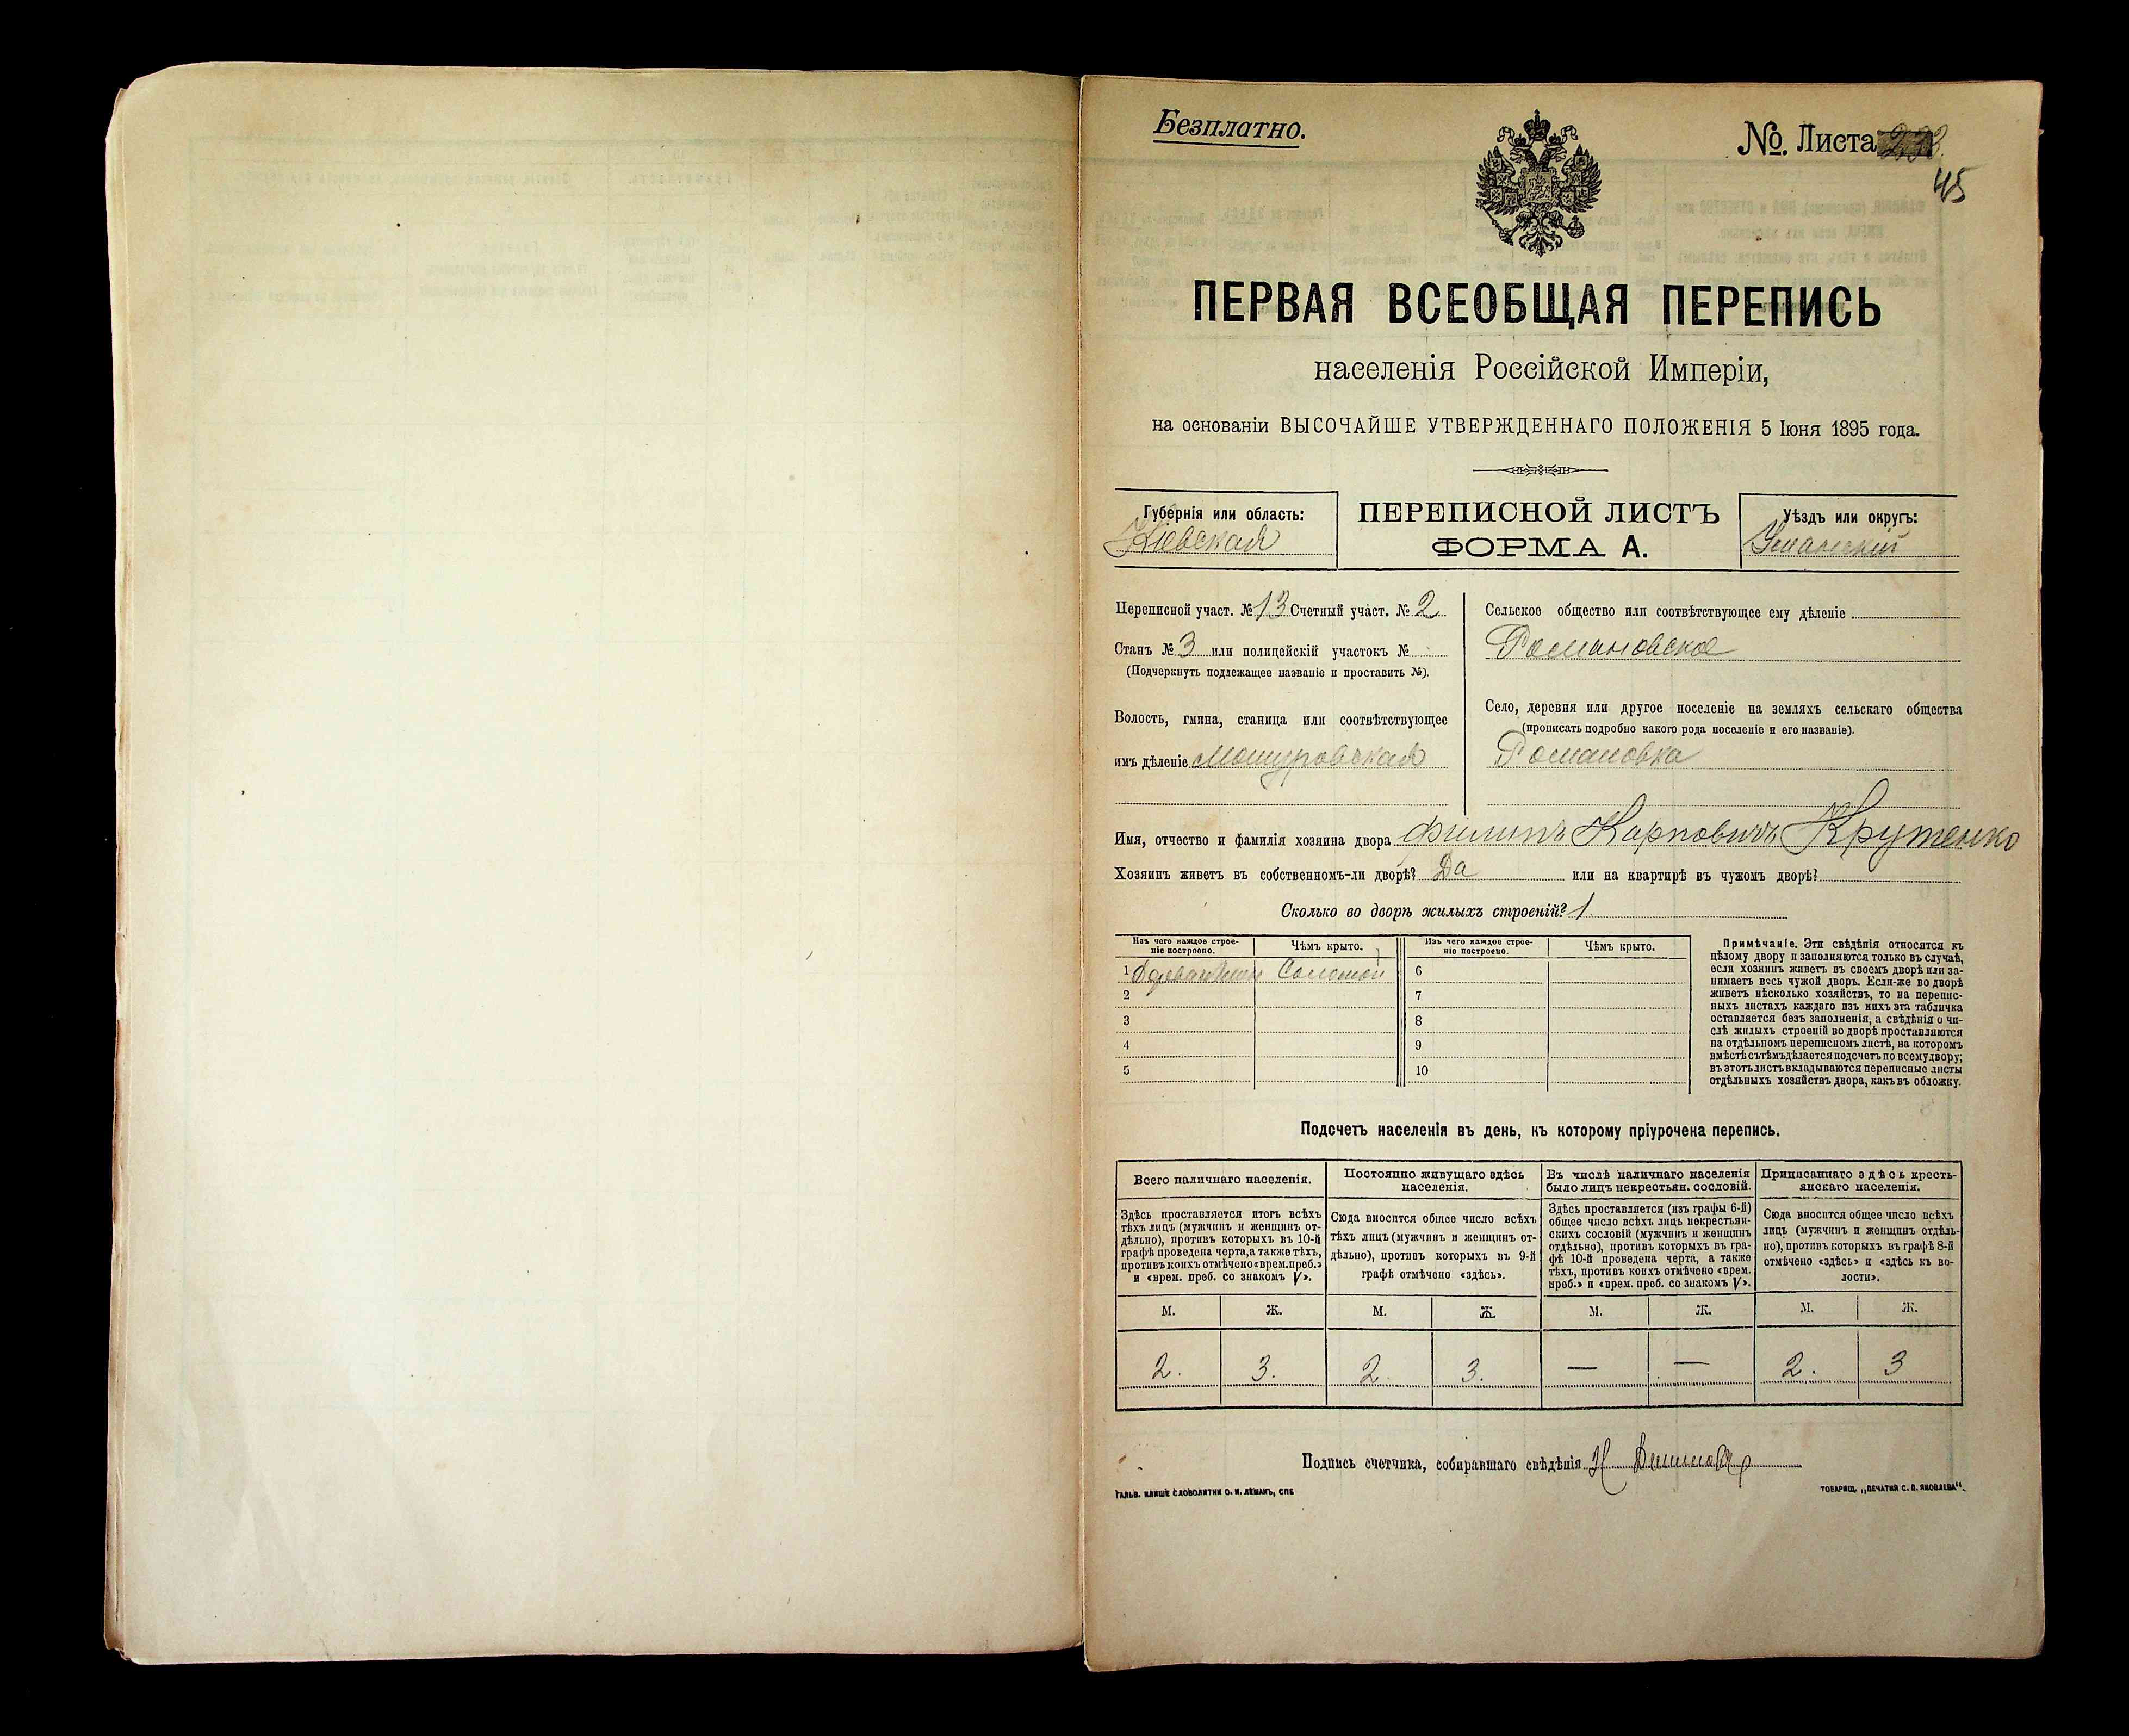 Безплатно.
№. Листа
45
ПЕРВАЯ ВСЕОБЩАЯ ПЕРЕПИСЬ
населенія Россійской Имперіи,
на основаніи ВЫСОЧАЙШЕ УТВЕРЖДЕННАГО ПОЛОЖЕНІЯ 5 Іюня 1895 года.
Губернія или область:
Кіевская
ПЕРЕПИСНОЙ ЛИСТЪ
ФОРМА А.
Уѣздъ или округъ:
Уманскій
Переписной участ. № 13 Счетный участ. № 2
Станъ № 3 или полицейскій участокъ №
(Подчеркнуть подлежащее названіе и проставить №).
Волость, гмина, станица или соотвѣтствующее
имъ дѣленіе Мошуровская
Сельское общество или соотвѣтствующее ему дѣленіе
Романовское
Село, деревня или другое поселеніе на земляхъ сельскаго общества
(прописать подробно какого рода поселеніе и его названіе).
Романовка
Имя, отчество и фамилія хозяина двора Филипъ Карповичъ Крутенко
Хозяинъ живетъ въ собственномъ-ли дворѣ? Да или на квартирѣ въ чужомъ дворѣ?
Сколько во дворѣ жилыхъ строеній? 1
Изъ чего каждое строе-
ніе построено.
Чѣмъ крыто.
Изъ чего каждое строе-
ніе построено.
Чѣмъ крыто.
1 Соломой 6
2 7
3 8
4 9
5 10
Примѣчаніе. Эти свѣдѣнія относятся къ
цѣлому двору и заполняются только въ случаѣ,
если хозяинъ живетъ въ своемъ дворѣ или за-
нимаетъ весь чужой дворъ. Если-же во дворѣ
живетъ нѣсколько хозяйствъ, то на перепис-
ныхъ листахъ каждаго изъ нихъ эта табличка
оставляется безъ заполненія, а свѣдѣнія о чи-
слѣ жилыхъ строеній во дворѣ проставляются
на отдѣльномъ переписномъ листѣ, на которомъ
вмѣстѣ съ тѣмъ дѣлается подсчетъ по всему двору;
въ этотъ листъ вкладываются переписные листы
отдѣльныхъ хозяйствъ двора, какъ въ обложку.
Подсчетъ населенія въ день, къ которому пріурочена перепись.
Всего наличнаго населенія.
Здѣсь проставляется итогъ всѣхъ
тѣхъ лицъ (мужчинъ и женщинъ от-
дѣльно), противъ которыхъ въ 10-й
графѣ проведена черта, а также тѣхъ,
противъ коихъ отмѣчено «врем. преб.»
и «врем. преб. со знакомъ V».
Постоянно живущаго здѣсь
населенія.
Сюда вносится общее число всѣхъ
тѣхъ лицъ (мужчинъ и женщинъ от-
дѣльно), противъ которыхъ въ 9-й
графѣ отмѣчено «здѣсь».
Въ числѣ наличнаго населенія
было лицъ некрестьян. сословій.
Здѣсь проставляется (изъ графы 6-й)
общее число всѣхъ лицъ некрестьян-
скихъ сословій (мужчинъ и женщинъ
отдѣльно), противъ которыхъ въ гра-
фѣ 10-й проведена черта, а также
тѣхъ, противъ коихъ отмѣчено «врем.
преб.» и «врем. преб. со знакомъ V».
Приписаннаго здѣсь кресть-
янскаго населенія.
Сюда вносится общее число всѣхъ
лицъ (мужчинъ и женщинъ отдѣль-
но), противъ которыхъ въ графѣ 8-й
отмѣчено «здѣсь» и «здѣсь къ во-
лости».
М. Ж. М. Ж. М. Ж. М. Ж.
2. 3. 2. 3. — — 2. 3
Подпись счетчика, собиравшаго свѣдѣнія
ГАЛЬВ. КЛИШЕ СЛОВОЛИТНИ О. И. ЛЕМАНЪ, СПБ
ТОВАРИЩ. „ПЕЧАТНЯ С. П. ЯКОВЛЕВА".